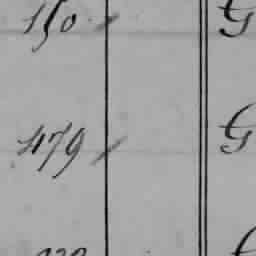 150 G
479 G